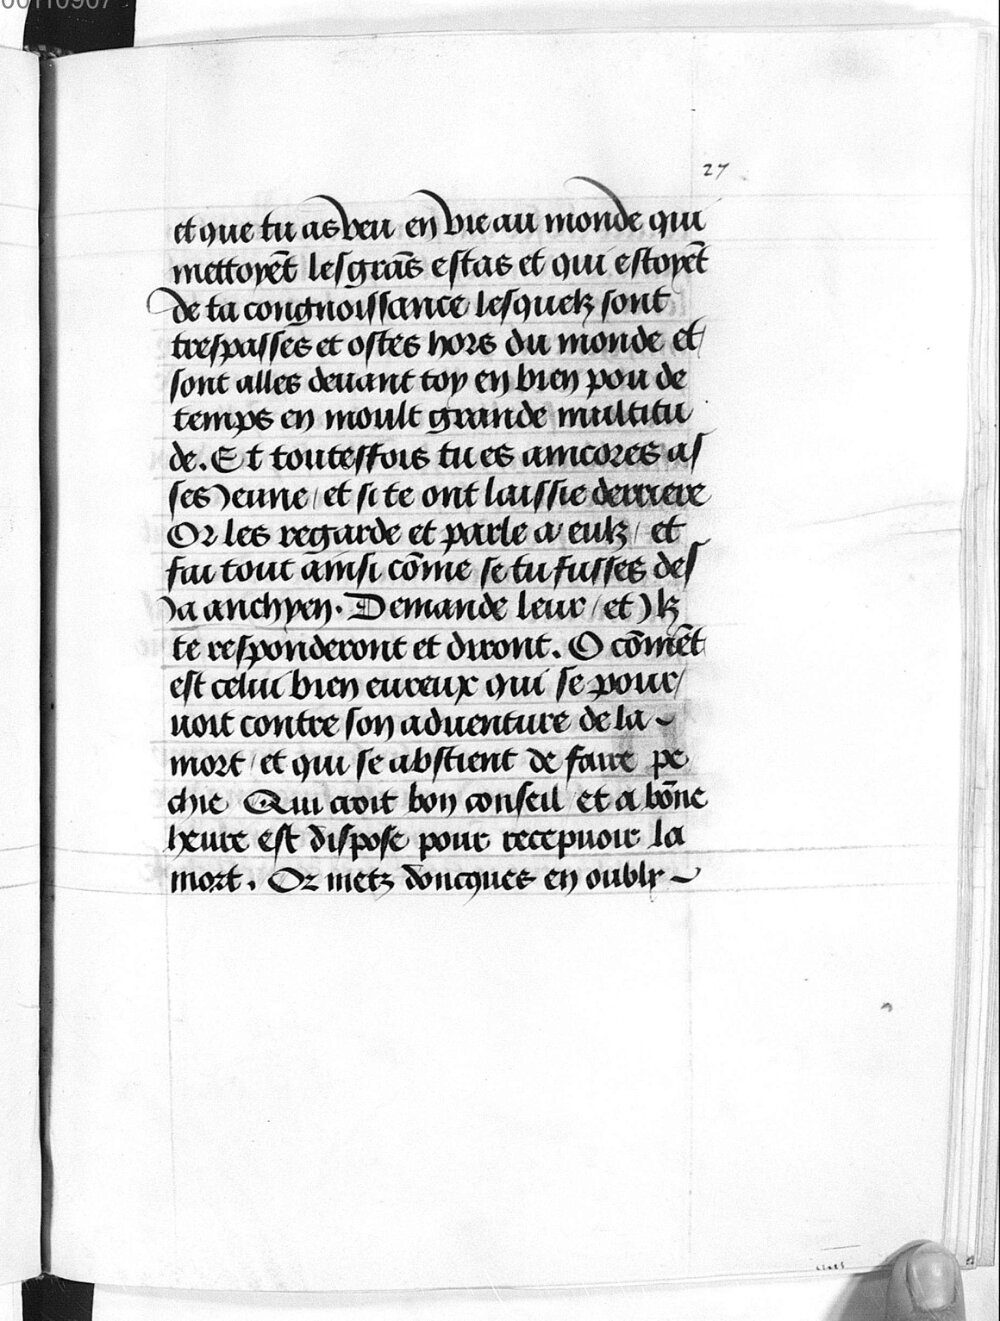 00110907
27
et que tu as veu en vie au monde qui
mettoyēt les grās estas et qui estoyēt
de ta congnoissance lesquelz sont
trespasses et ostes hors du monde et/
sont alles deuant toy en bien pou de
temps en moult grande multitu
de. Et toutesfois tu es amcores as
ses Jeune / et si te ont laissie derriere
Or les regarde et parle a eulz / et
fai tout ainsi cōme se tu fusses des
Ja anchyen. Demande leur / et Jlz
te responderont et diront. O cōmēt
est celui bien eureux qui se pour/
uoit contre son aduenture de la ~
mort / et qui se abstient de faire pe
chie Qui croit bon conseil et a bōne
heure est dispose pour recepuoir la
mort. Or metz doncques en oubly ~